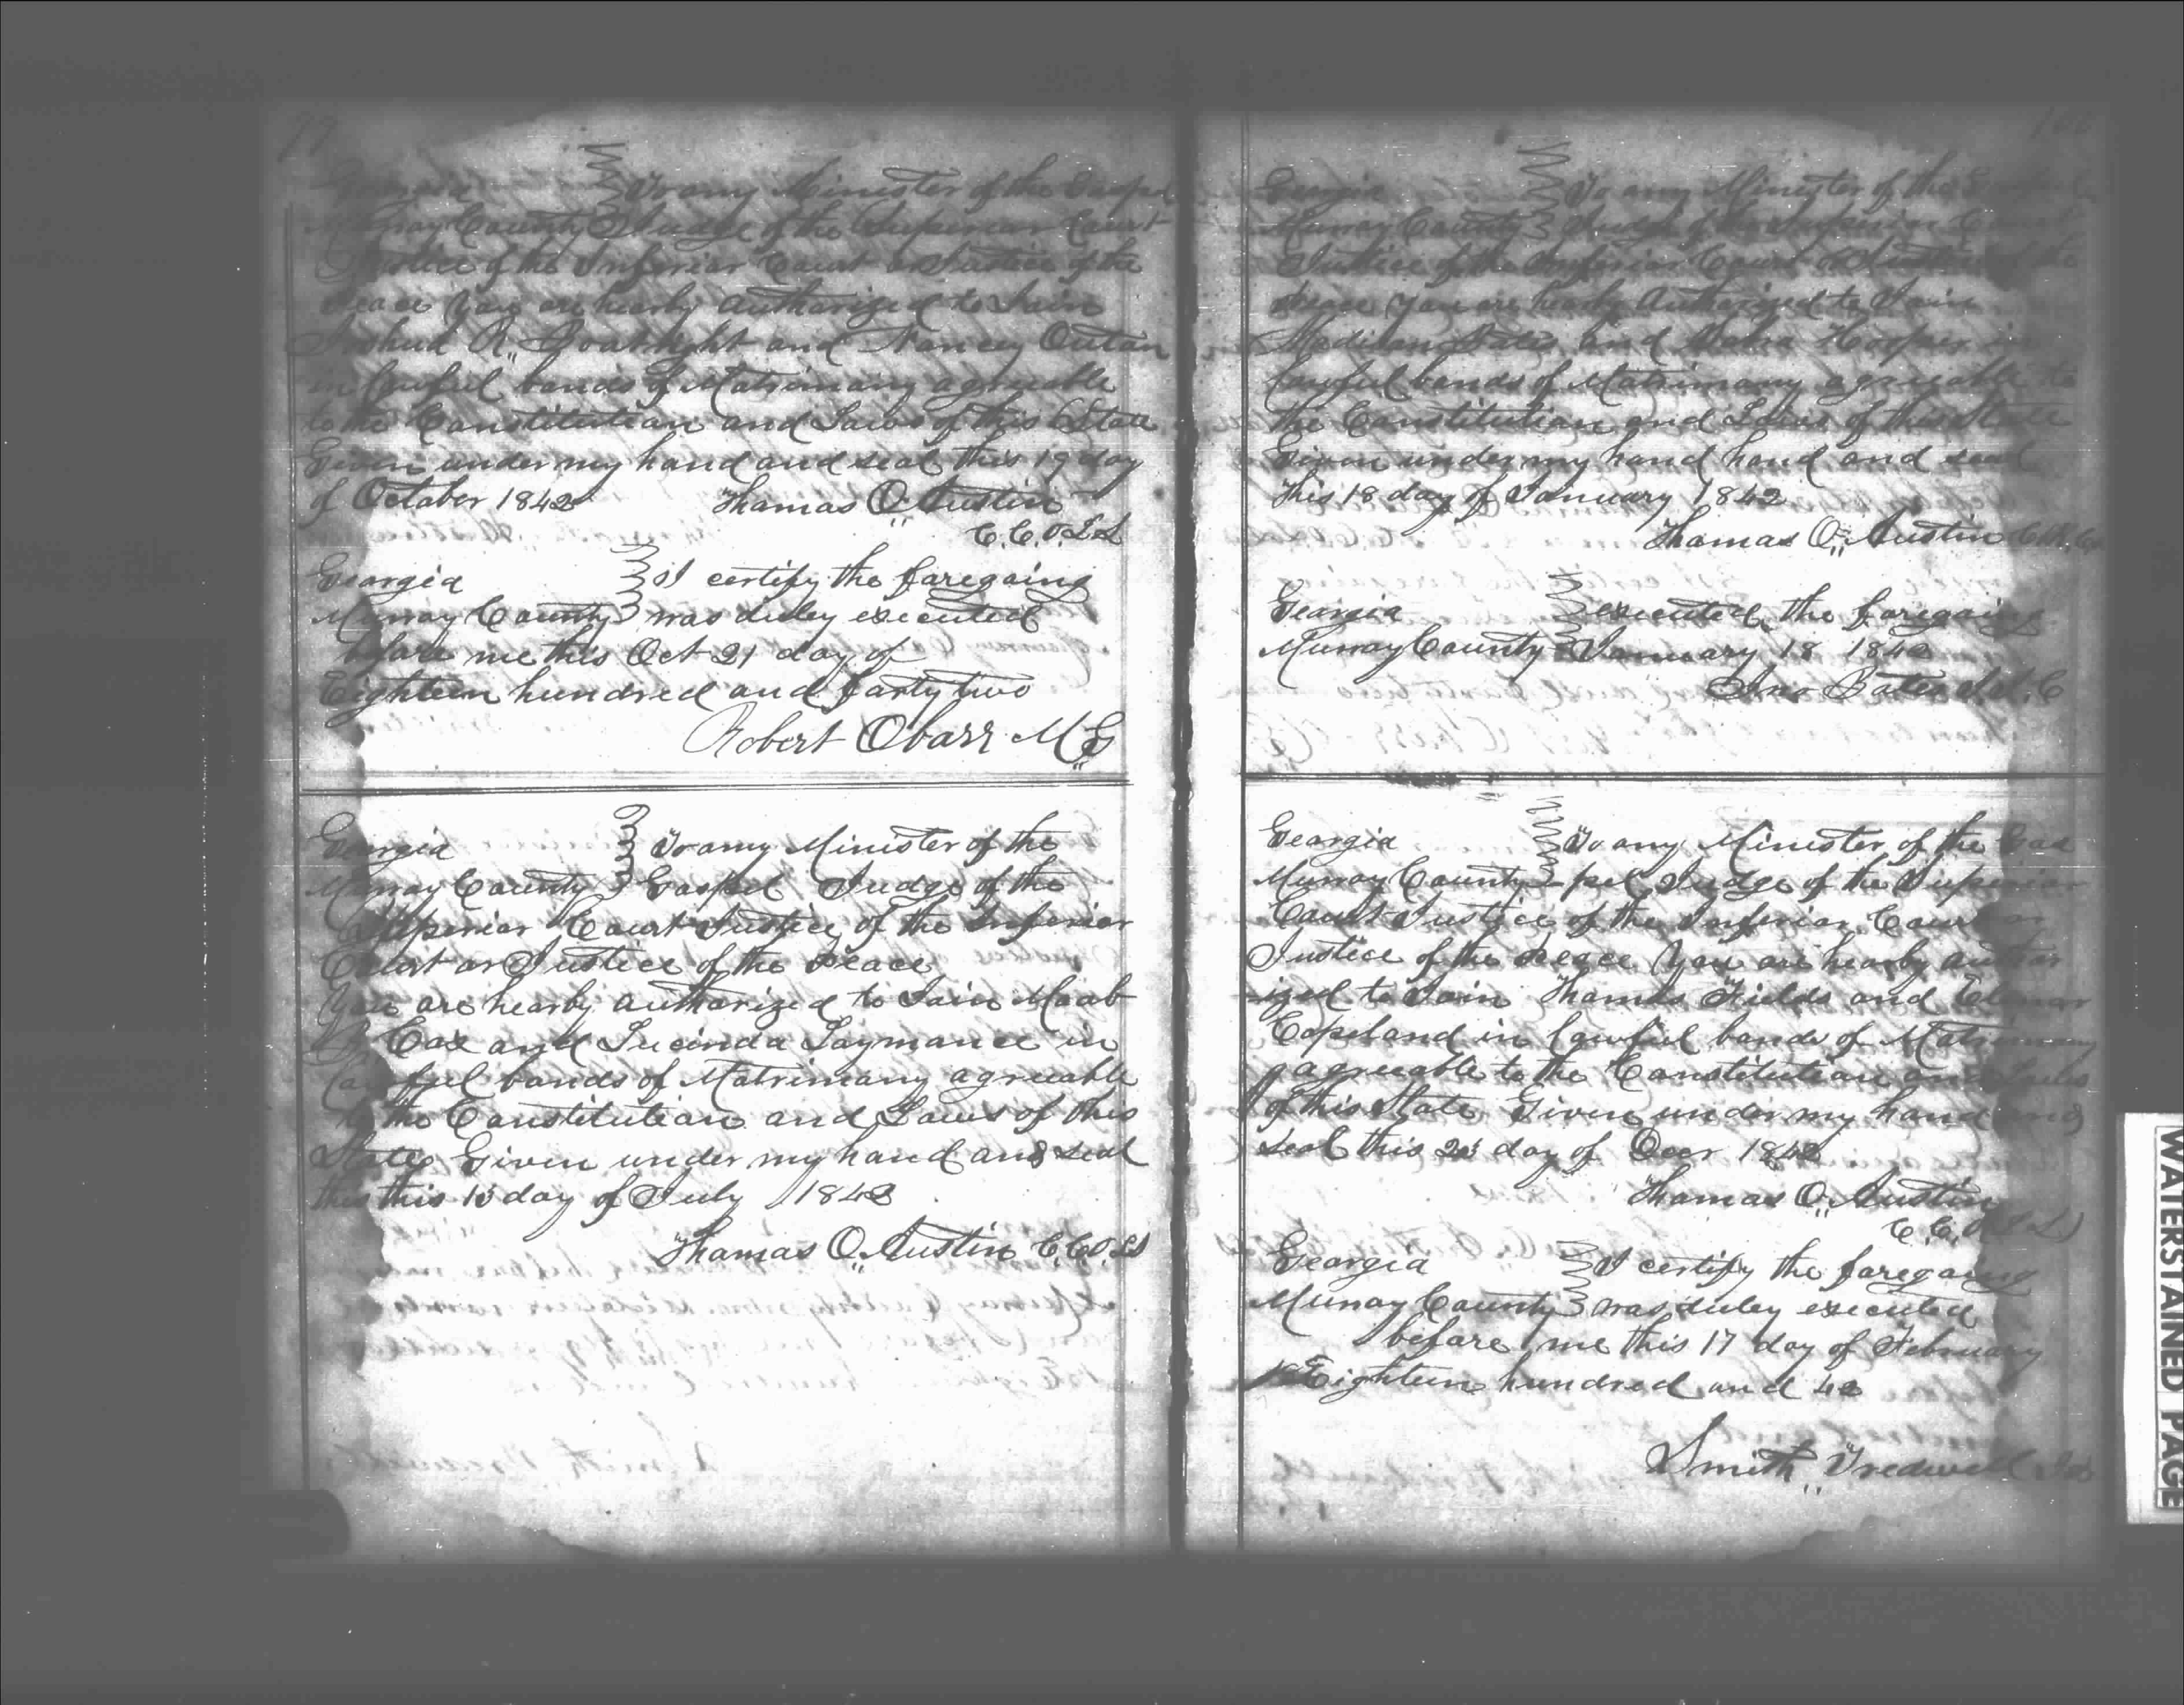 99
Georgia To any Minister of the Gospel
Murray County Judge of the Superior Court
Justice of the Inferior Court or Justice of the
Peace You are hearby authorized to Join
Joshua R,, Boatright and Nancy Outon
in lawful bands of Matrimony agreeable
to the Constitution and Laws of this State
Given under my hand and seal this 19 day
of October 1842 Thomas O,, Austin
C.C.O. LS
Georgia I certify the foregoing
Murray County was duley executed
before me this Oct 21 day of
Eighteen hundred and forty two
Robert Obarr M,,G
Georgia To any Minister of the
Murray County Gospel Judge of the
Superior Court Justice of the Inferior
Court or Justice of the Peace
You are hearby authorized to Join Moab
Cox and Lucinda Laymance in
lawful bands of Matrimony agreeable
to the Constitution and Laws of this
State Given under my hand and seal
this this 15 day of July 1842
Thomas O,, Austin C.C.O. LS
100
Georgia To any Minister of the Gospel
Murray County Judge of the Superior Court
Justice of the Inferior Court or Justice of the
Peace You are hearby Authorized to Join
Madison Bates and Hooper in
lawful bands of Matrimony agreeable to
the Constitution and Laws of this State
Given under my hand hand and seal
this 18 day of January 1842
Thomas O,, Austin
Georgia executed the foregoing
Murray County January 18 1842
Jno Bates J.I.C
Georgia To any Minister of the Gos
Murray County pel Judge of the Superior
Court Justice of the Inferior Court or
Justice of the Peace You are hearby author
ized to Join Thomas Fields and Elenor
Copeland in lawful bands of Matrimony
agreeable to the Constitution and Laws
of this State Given under my hand and
seal this day of Decr 1842
Thomas O,, Austin
C.C.O. (LS)
Georgia I certify the foregoing
Murray County was duley executed
before me this 17 day of February
Eighteen hundred and 42
Smith,, Tredwell
WATERSTAINED PAGE